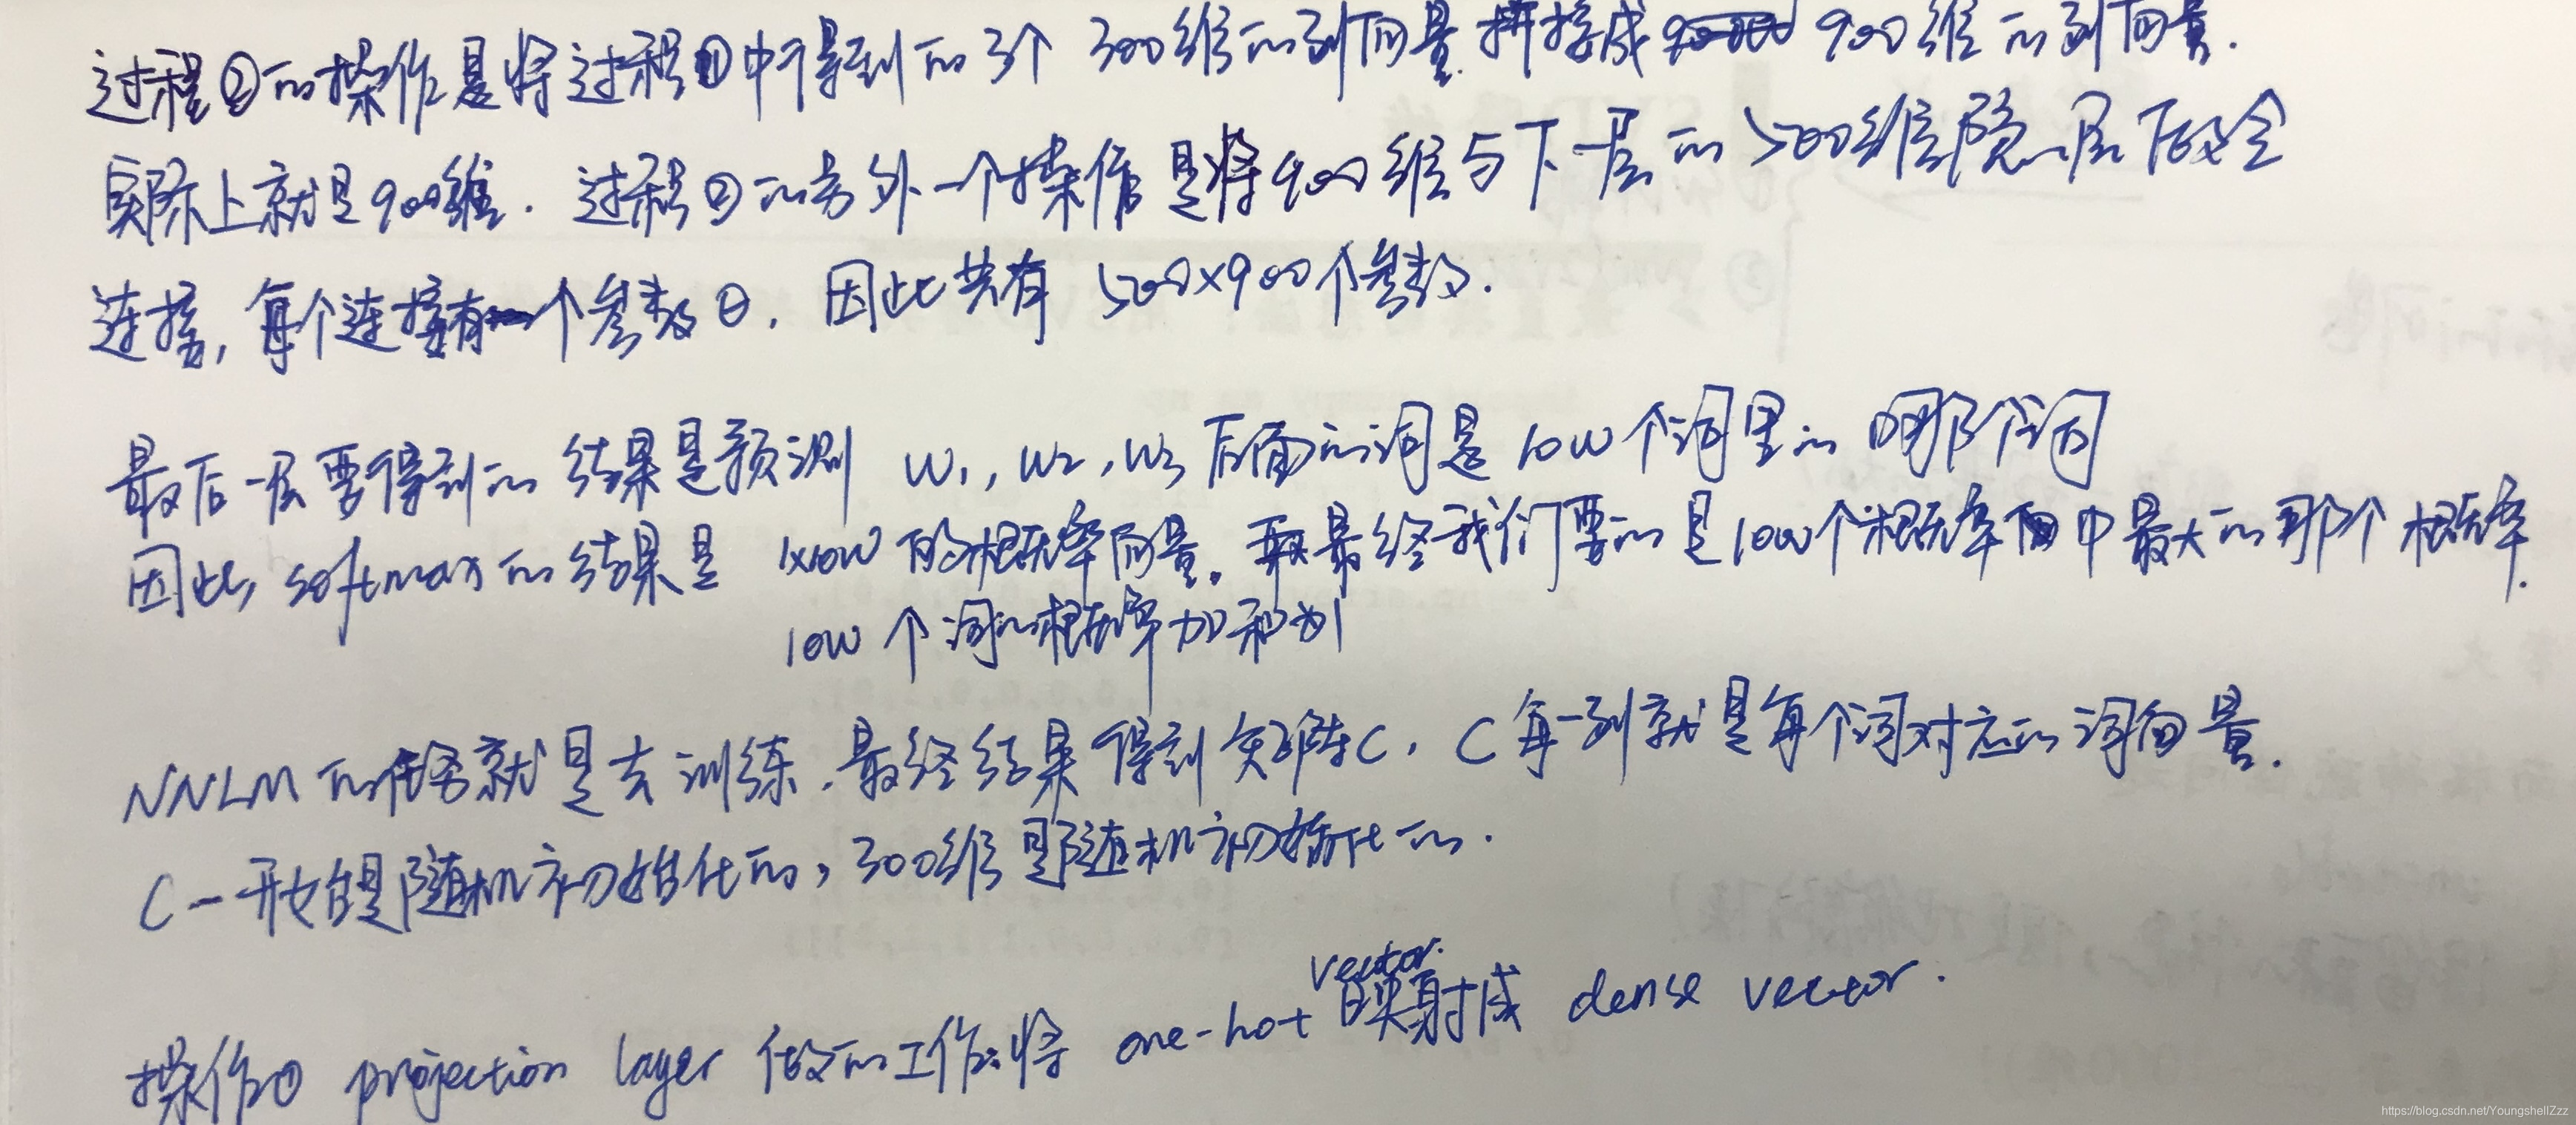 过程②的操作是将过程①中得到的3个 300维的列向量拼接成 900维的列向量.
实际上就是900维. 过程②的另外一个操作是将900维与下一层的500维隐层做全
连接, 每个连接有一个参数θ, 因此共有 500×900个参数.
最后一层要得到的结果是预测 W1, W2, W3 后面的词是 10W个词里的哪个词
因此 softmax的结果是 1×10W的概率向量。最终我们要的是10W个概率中最大的那个概率.
10W个词的概率加和为1
NNLM的任务就是去训练.最终结果得到矩阵C, C每一列就是每个词对应的词向量.
C一开始是随机初始化的, 300维是随机初始化的.
操作① projection layer 做的工作:将 one-hot vector 映射成 dense vector.
https://blog.csdn.net/YoungshellZzz